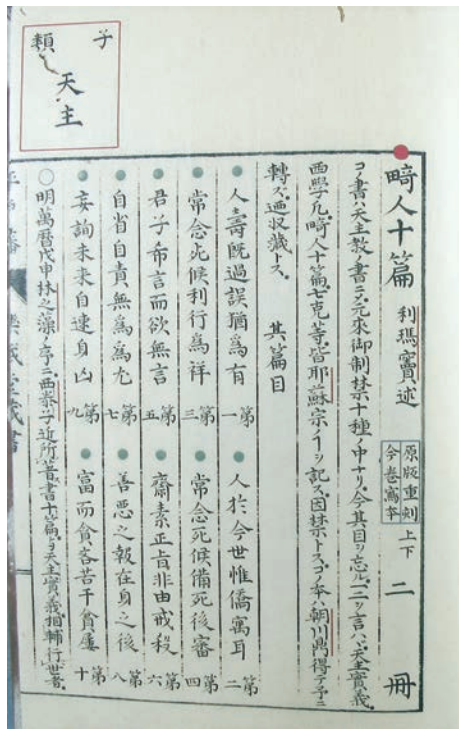 子
類
天主
畸人十篇 利瑪竇述 原版重刻 今巻寫本 上下 二冊
コノ書ハ天主教ノ書ニソ元來御制禁十種ノ中ナリ今其目ヲ忘ル一二ヲ言ハヾ天主實義
西學凡畸人十篇七克等皆耶蘇宗ノヿヲ記ス因禁トスコノ本ハ朝川鼎得テ予ニ
轉ズ迺収藏トス 其篇目
人壽旣過誤猶爲有 第一 人於今世惟僑寓耳 第二
常念死候利行爲祥 第三 常念死候備死後審 第四
君子希言而欲無言 第五 齋素正旨非由戒殺 第六
自省自責無爲爲尤 第七 善惡之報在身之後 第八
妄詢未來自速身凶 第九 富而貪吝苦于貧屢 第十
○明萬曆戊申林之藻ノ序ニ西泰子近所著書十篇ヨ天主實義相輔行世者